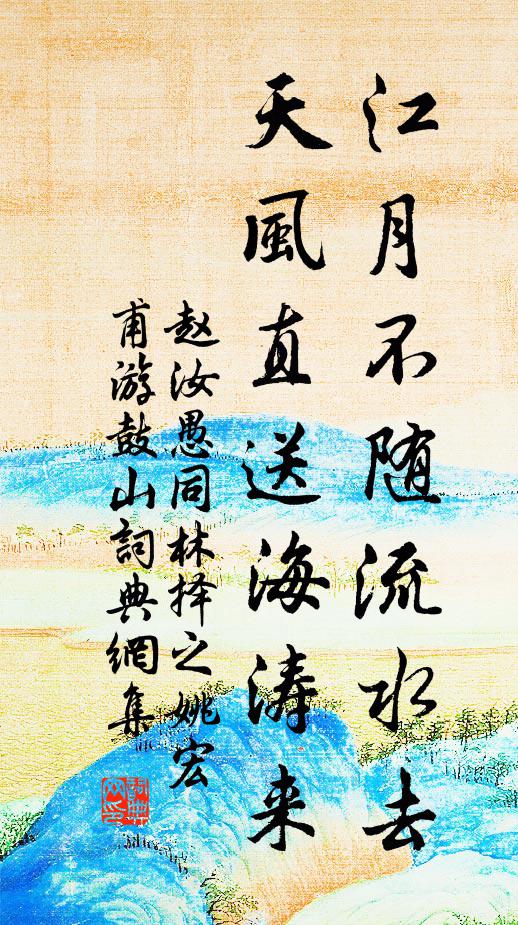 江月不随流水去
天風直送海涛来
赵汝愚同林择之姚宏
甫游鼓山詞典網集